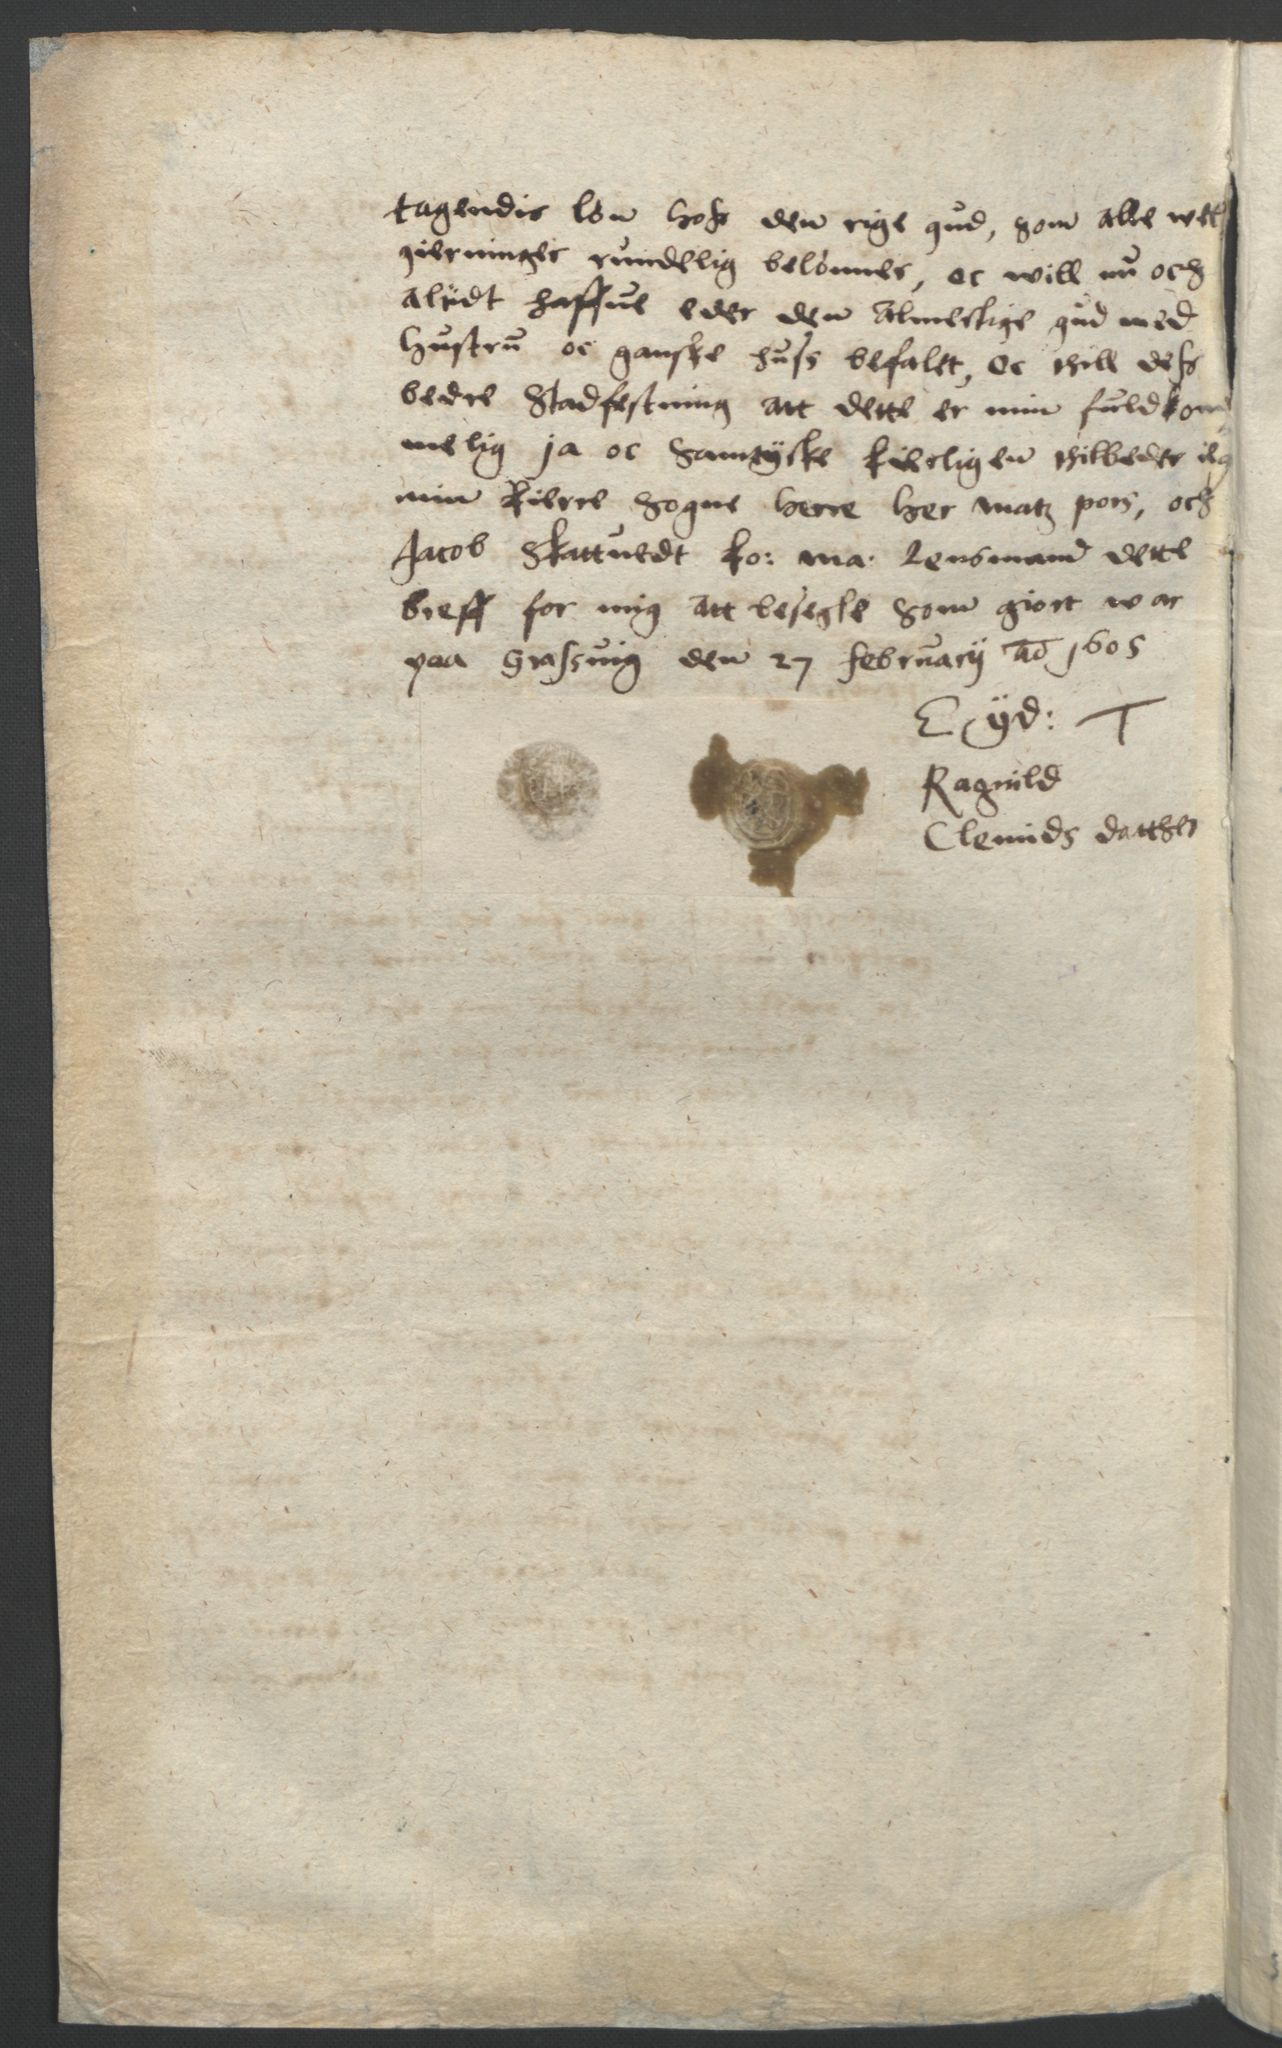 tagendis lön hoss den rige gud, som alle vel
gierninger rundelig belönner, oc will nu och
altidt haffue eder den Almectige gud med
hustru oc ganske huss befalet, Oc thill dess
bedre Stadfestning att dette er min fuldkom
melig ja oc Samtÿcke kierligen thilbeder ieg
min kierre Sogne herre her matz pors, och
Jacob Skattuedt ko: ma: Lensmand dette
breff for mig att besegle som giort war
paa Grassuig den 27 februarij Ao 1605
E ÿd: T
Ragnild
Clemids datther